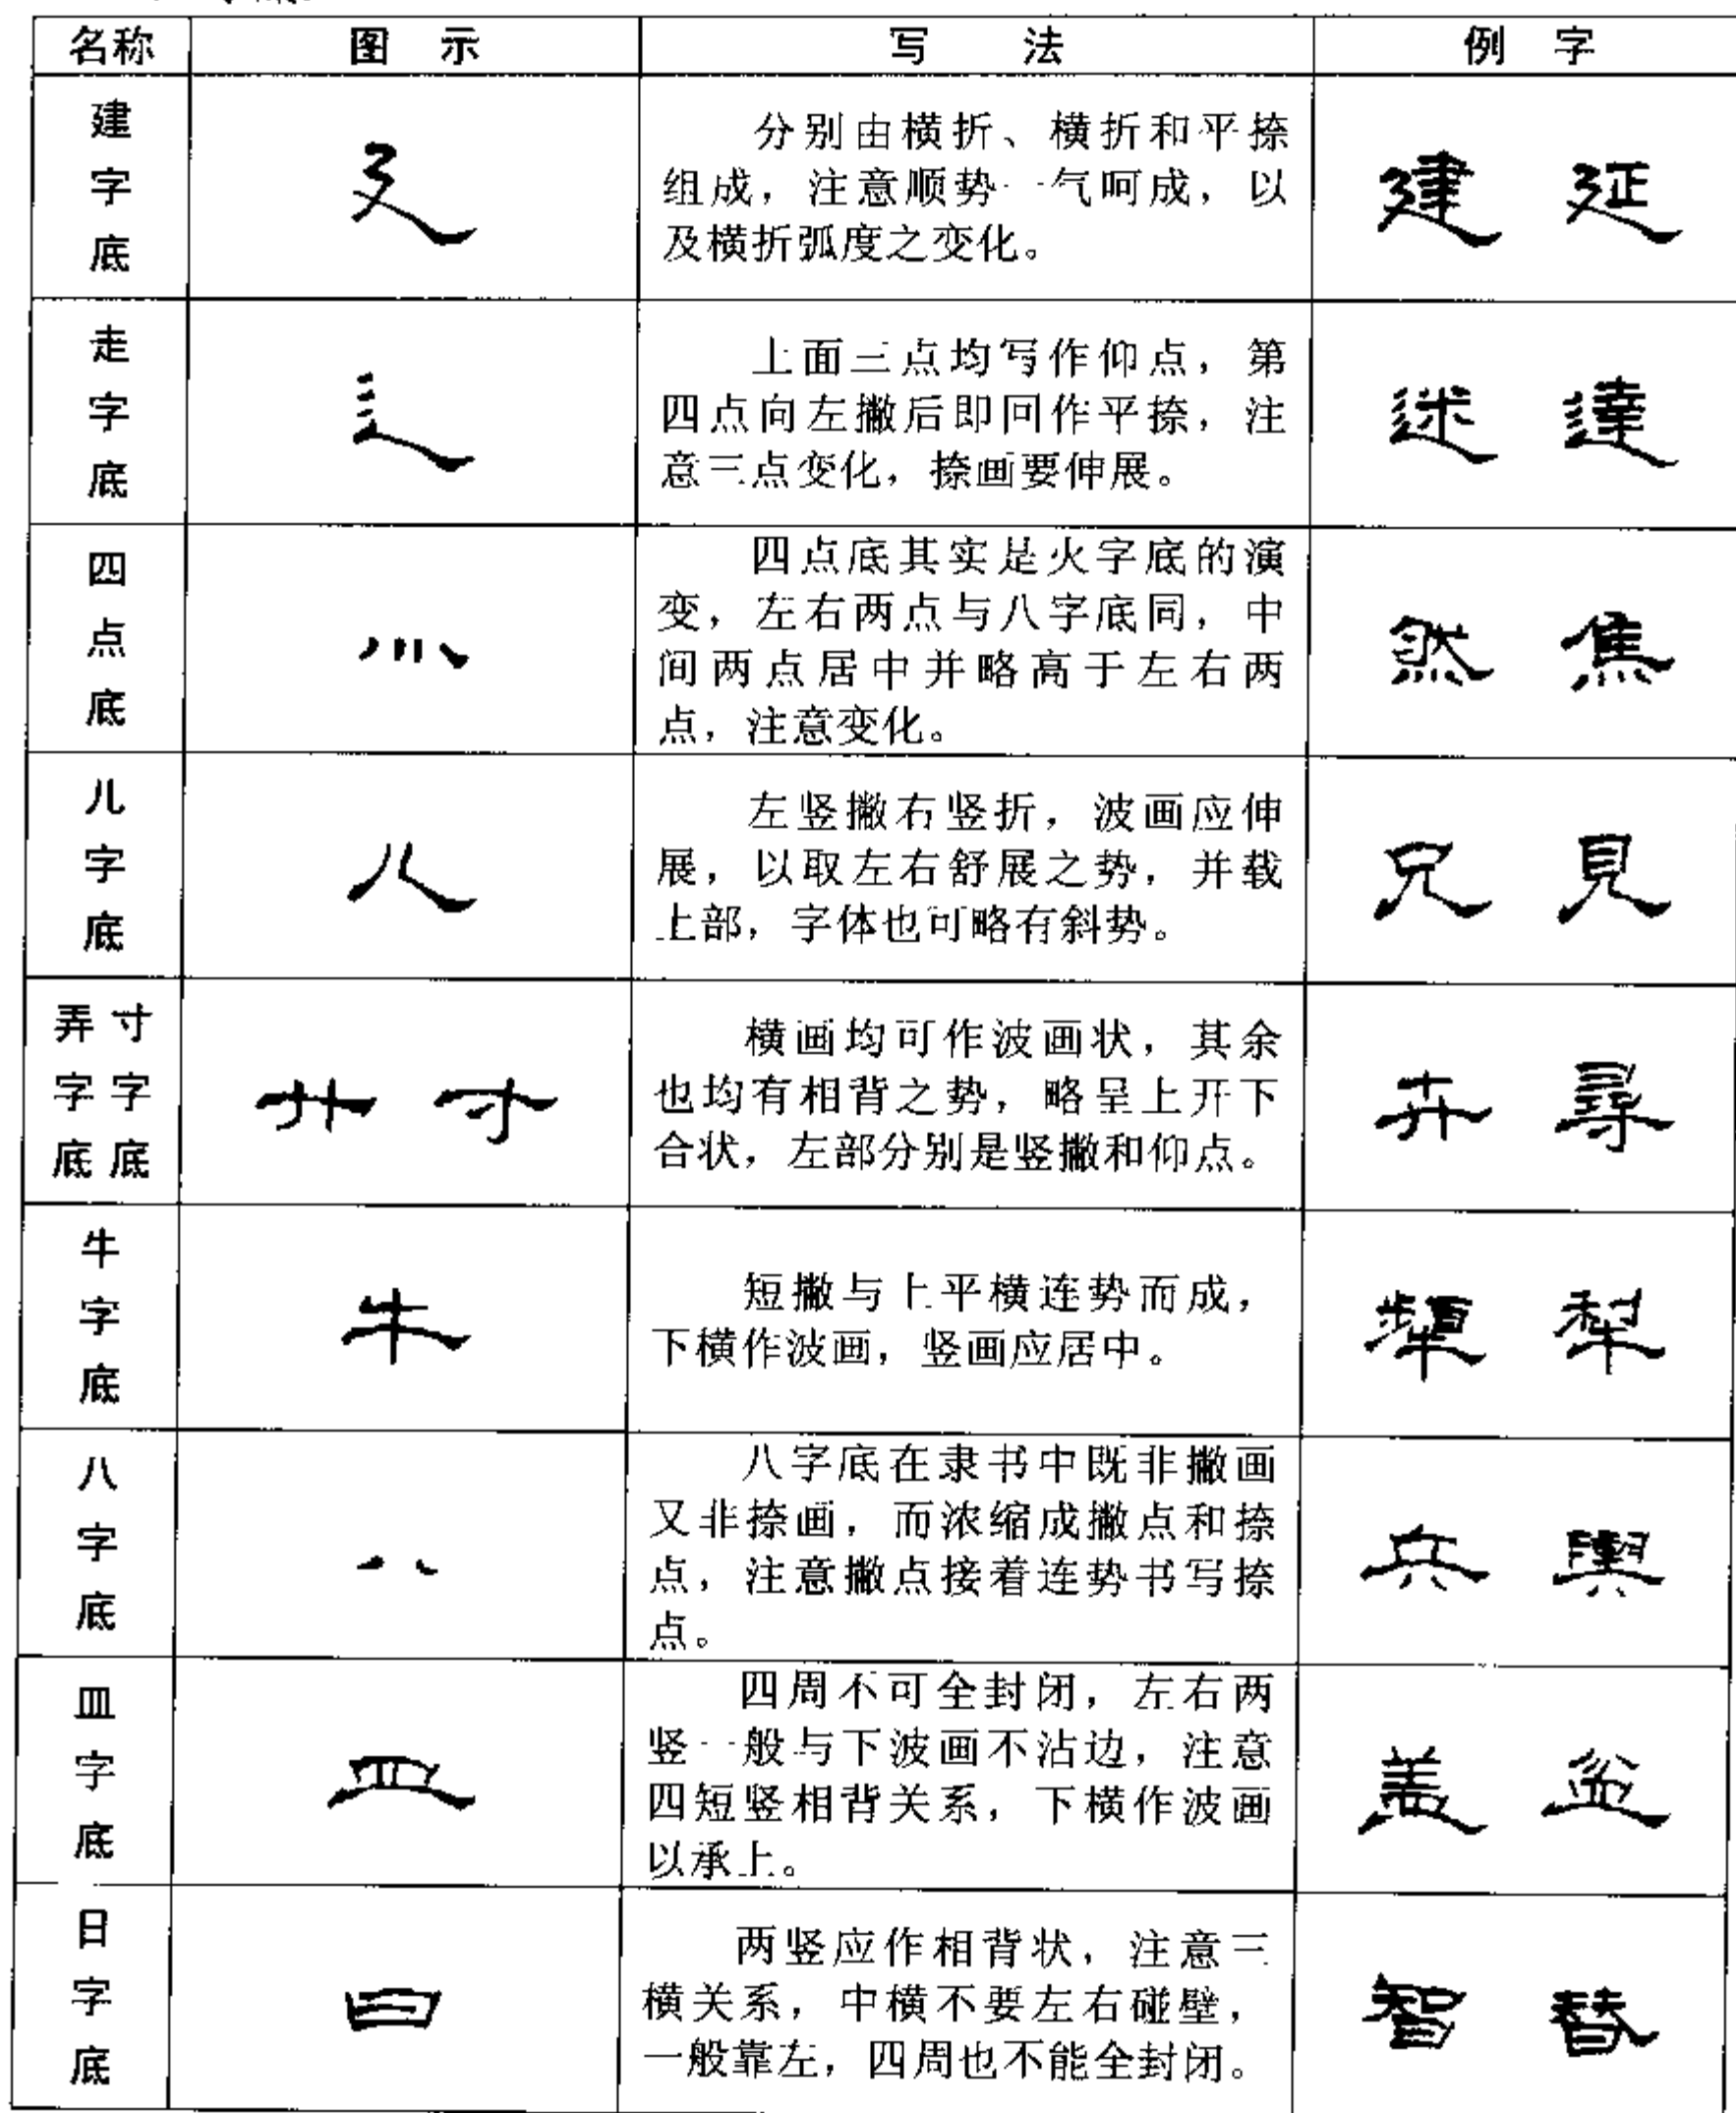 名称 图 示 写 法 例 字
建字底
分别由横折、横折和平捺
组成，注意顺势一气呵成，以
及横折弧度之变化。
建 延
走字底
上面三点均写作仰点，第
四点向左撇后即回作平捺，注
意三点变化，捺画要伸展。
述 達
四点底
四点底其实是火字底的演
变，左右两点与八字底同，中
间两点居中并略高于左右两
点，注意变化。
然 焦
儿字底
左竖撇右竖折，波画应伸
展，以取左右舒展之势，并载
上部，字体也可略有斜势。
兄 見
弄字底 寸字底
横画均可作波画状，其余
也均有相背之势，略呈上开下
合状，左部分别是竖撇和仰点。
卉 尋
牛字底
牛
短撇与上平横连势而成，
下横作波画，竖画应居中。
犁
八字底
八字底在隶书中既非撇画
又非捺画，而浓缩成撇点和捺
点，注意撇点接着连势书写捺
点。
兵 輿
皿字底
皿
四周不可全封闭，左右两
竖一般与下波画不沾边，注意
四短竖相背关系，下横作波画
以承上。
盖 盆
日字底
日
两竖应作相背状，注意三
横关系，中横不要左右碰壁，
一般靠左，四周也不能全封闭。
智 替